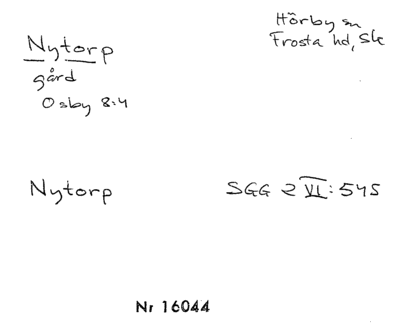 Nytorp
gård
Osby 8:4
Hörby sn
Frosta hd, Sk
Nytorp
SGG 2 VI: 545
Nr 16044